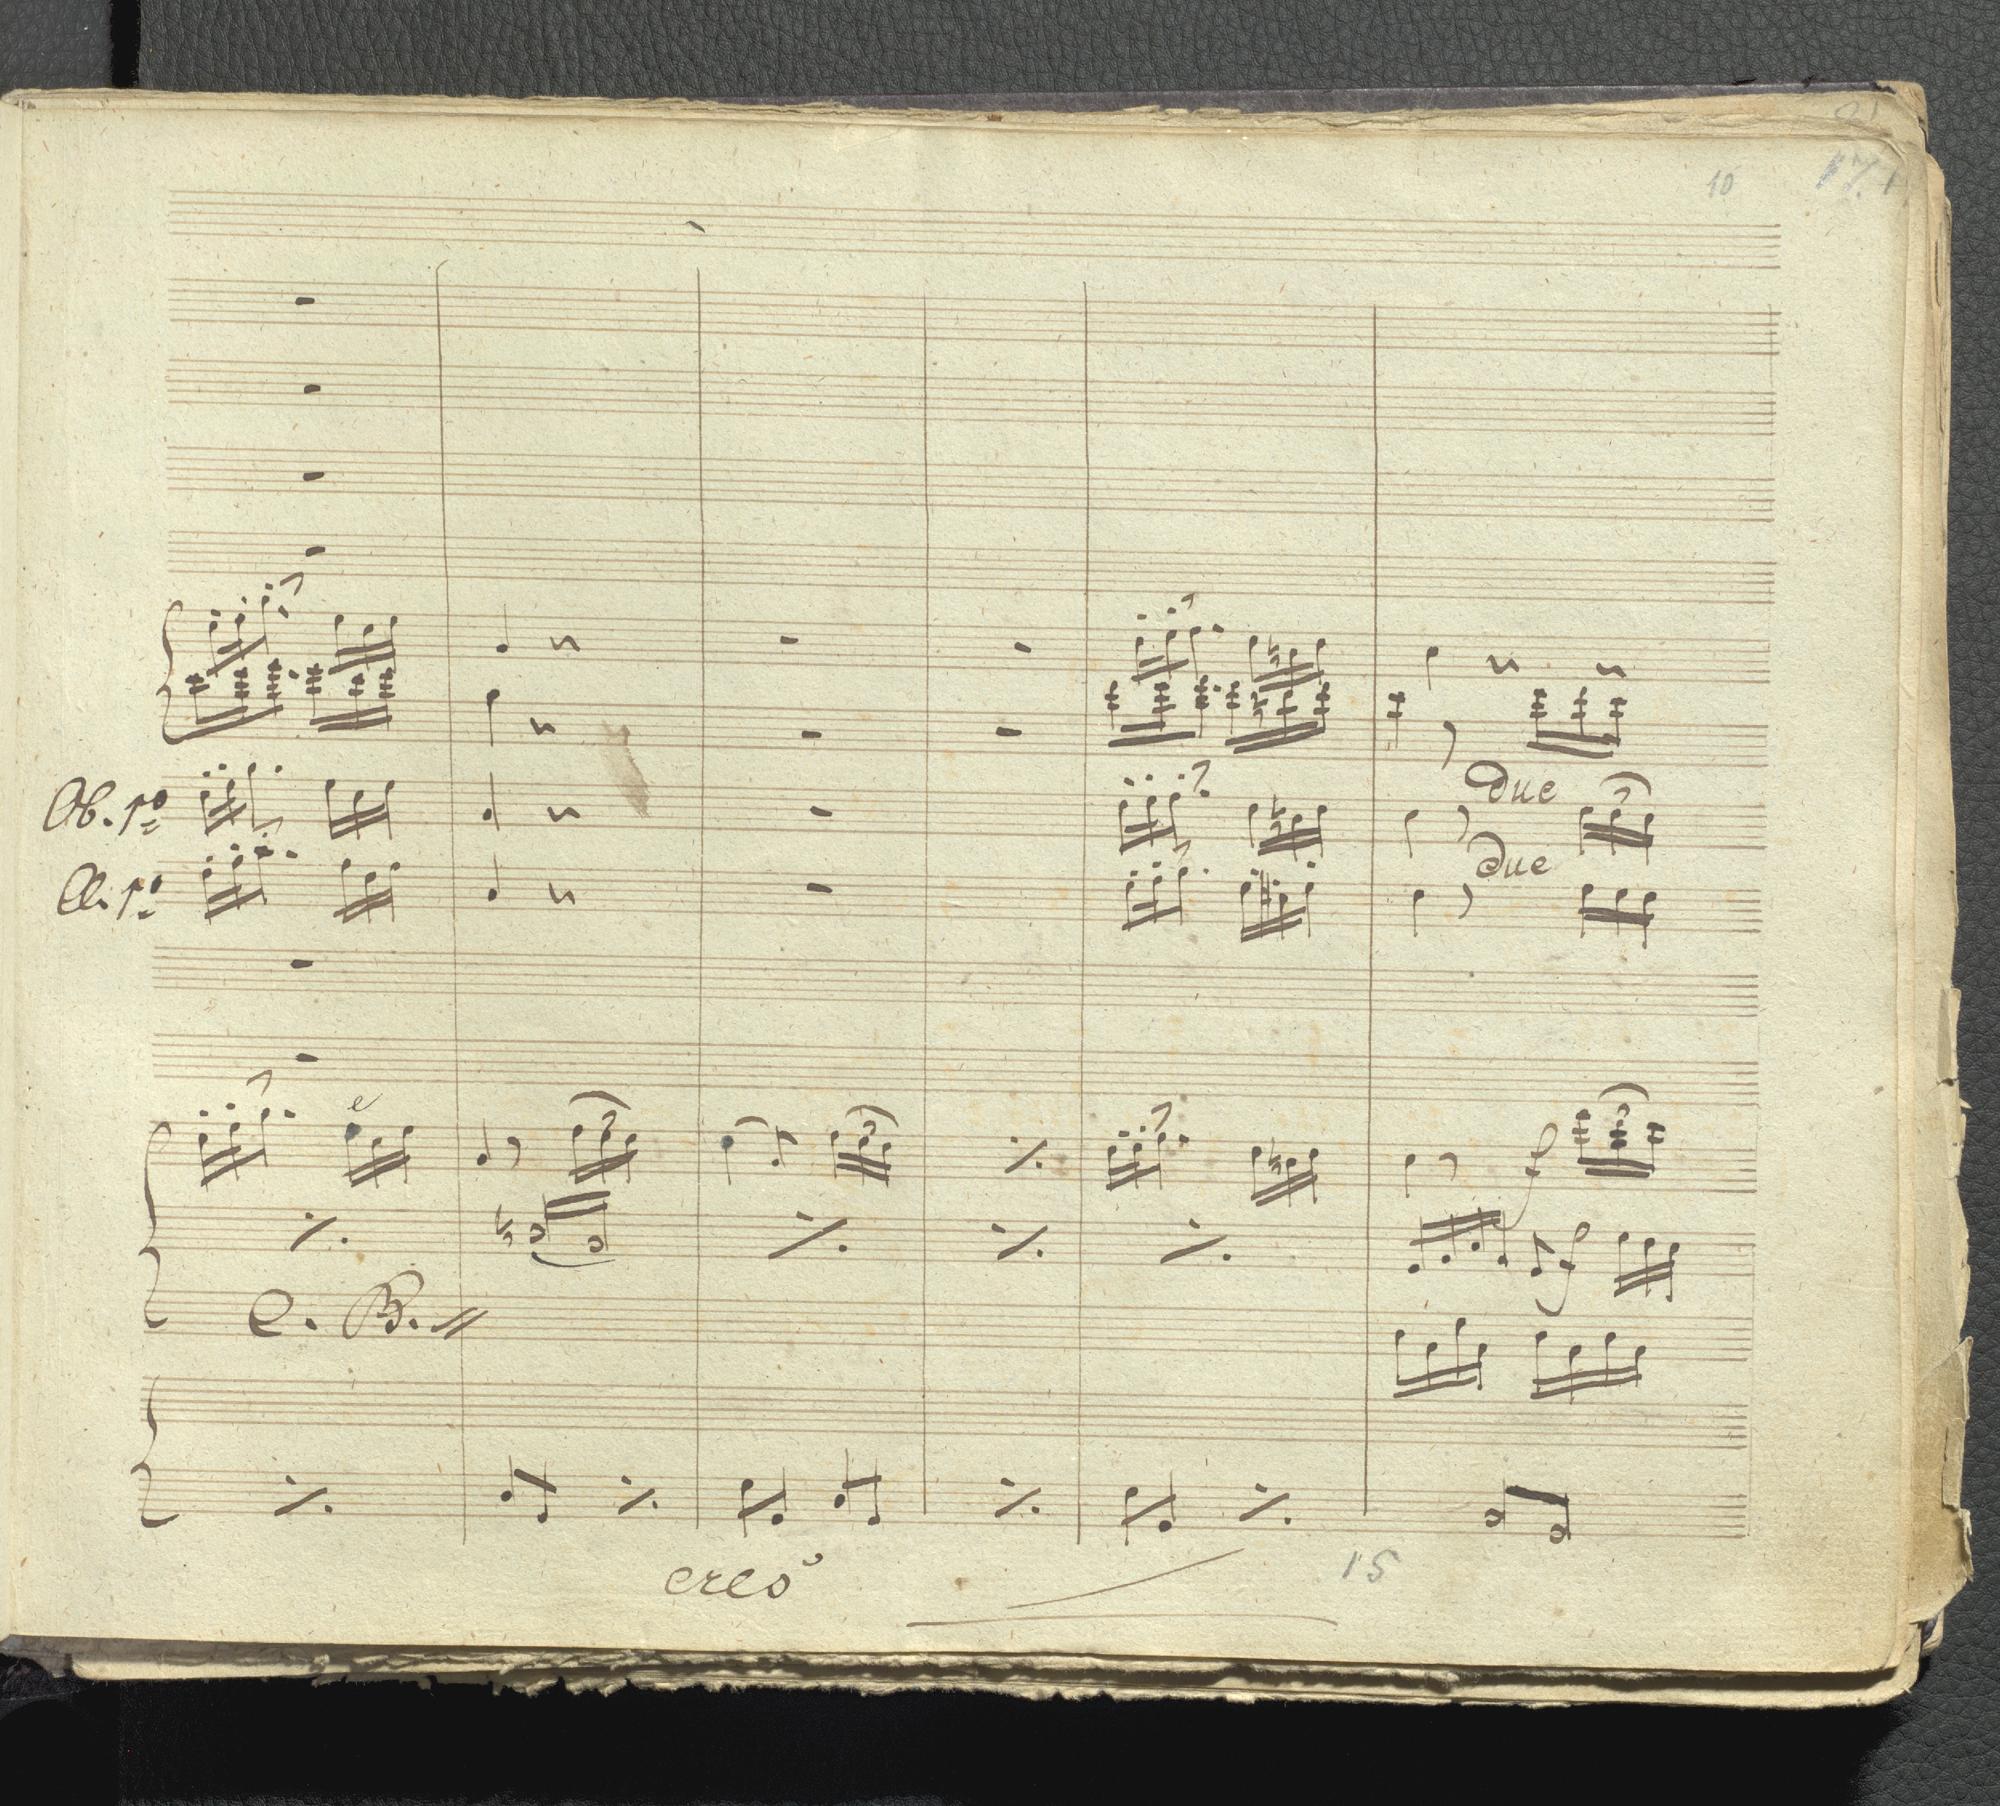 10
171
Ob. 1º
due
Cl. 1º
due
e
f
f
C. B. //
cres
15